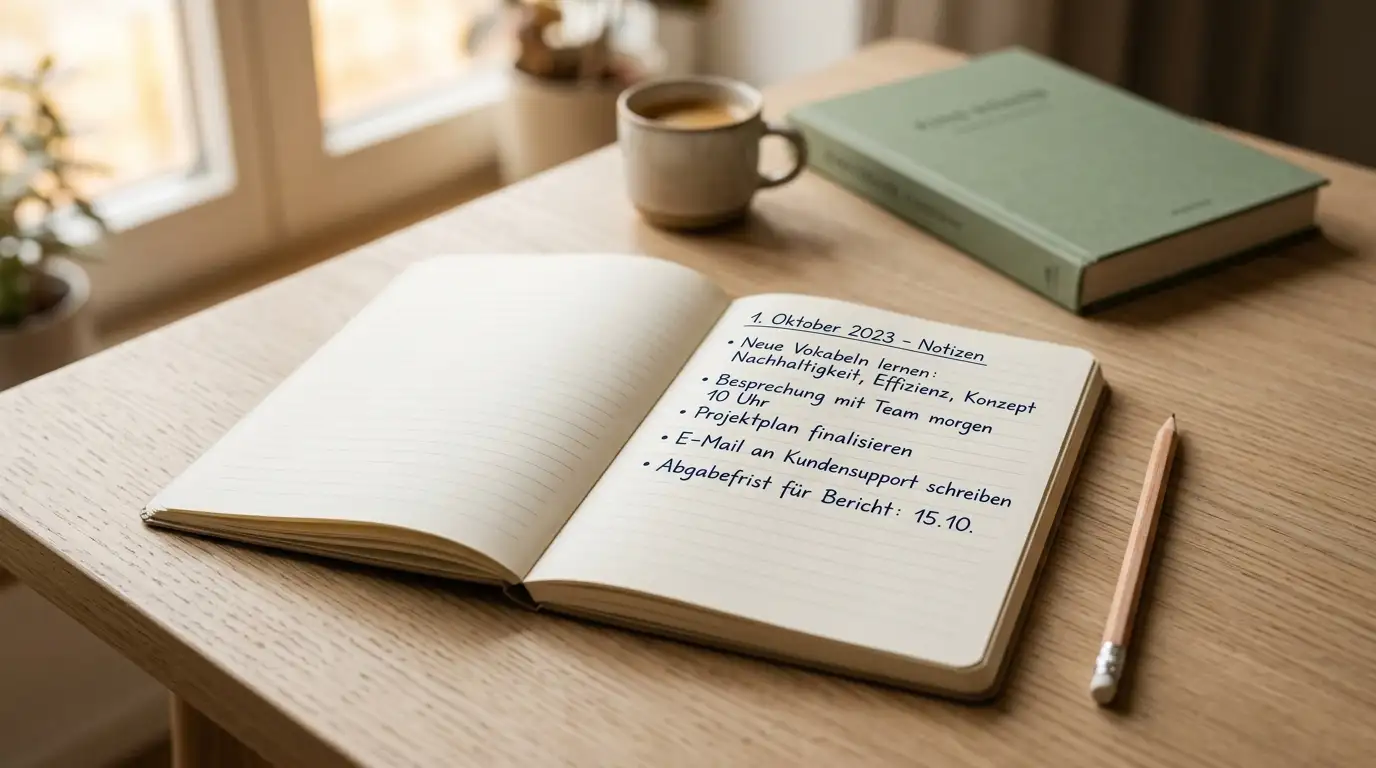 1. Oktober 2023 – Notizen
• Neue Vokabeln lernen:
Nachhaltigkeit, Effizienz, Konzept
• Besprechung mit Team morgen
10 Uhr
• Projektplan finalisieren
• E-Mail an Kundensupport schreiben
• Abgabefrist für Bericht: 15.10.